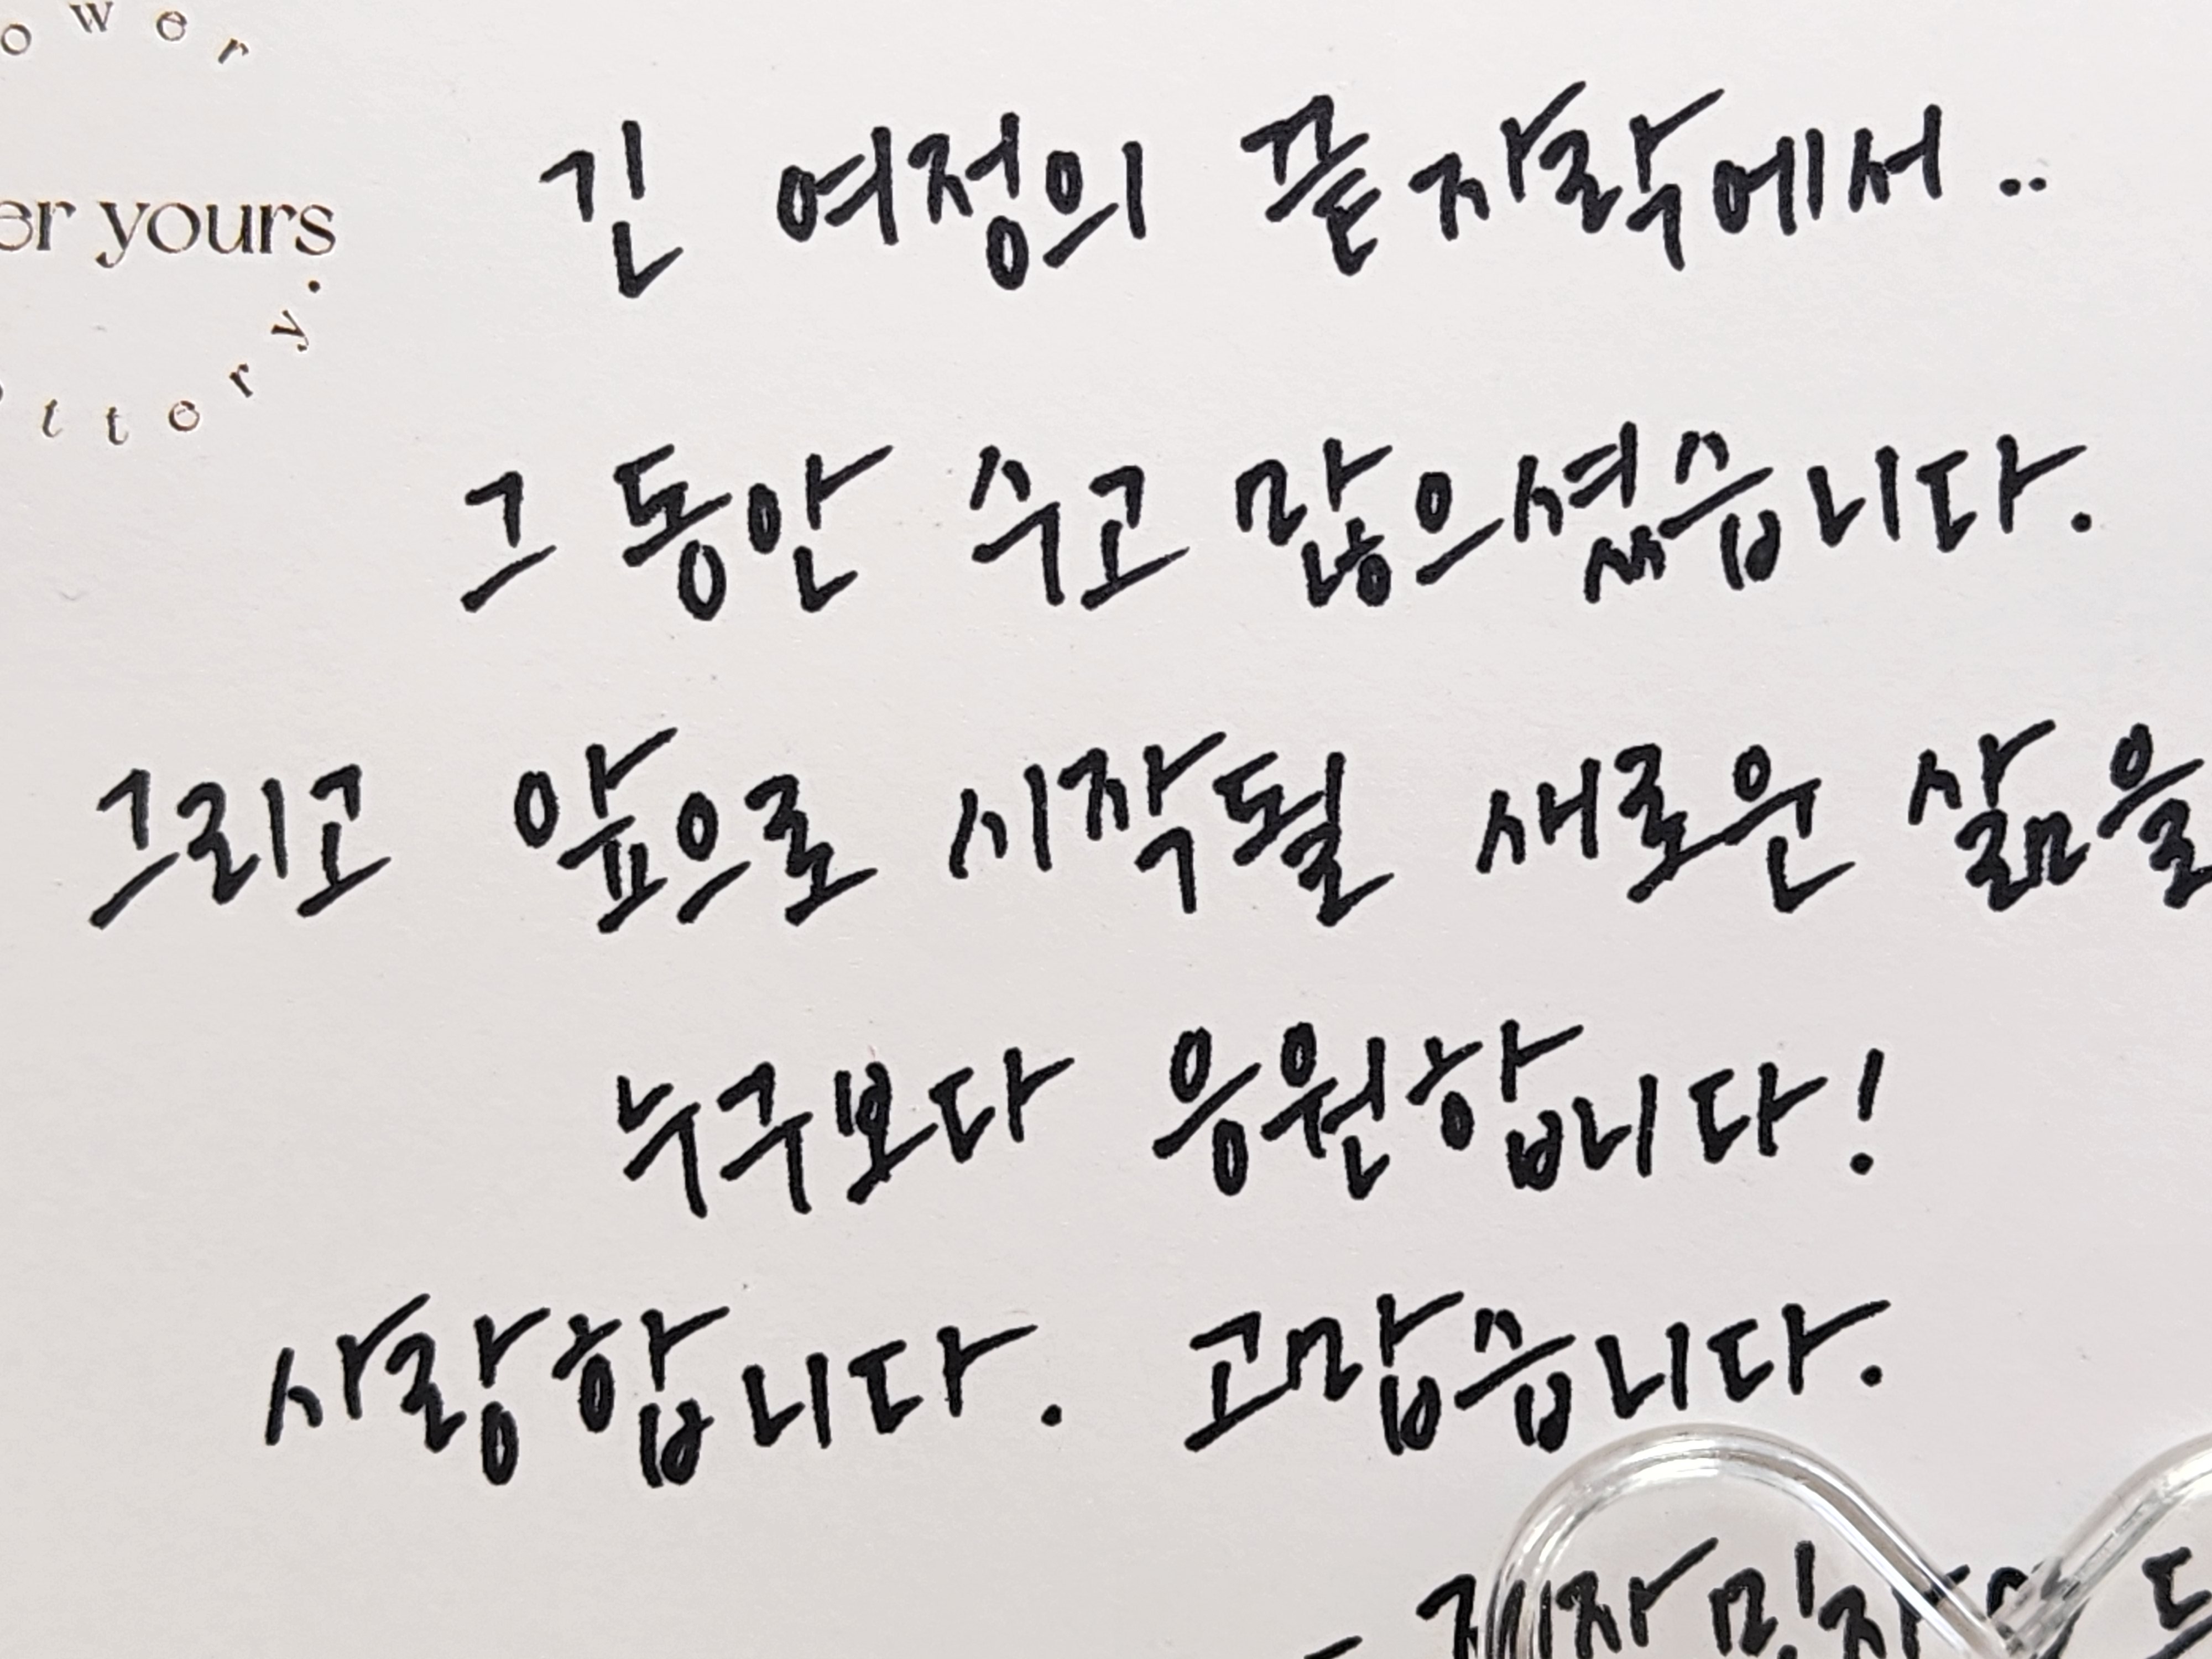 er yours
긴 여정의 끝자락에서..
그동안 수고 많으셨습니다.
그리고 앞으로 시작될 새로운 삶을
누구보다 응원합니다!
사랑합니다. 고맙습니다.